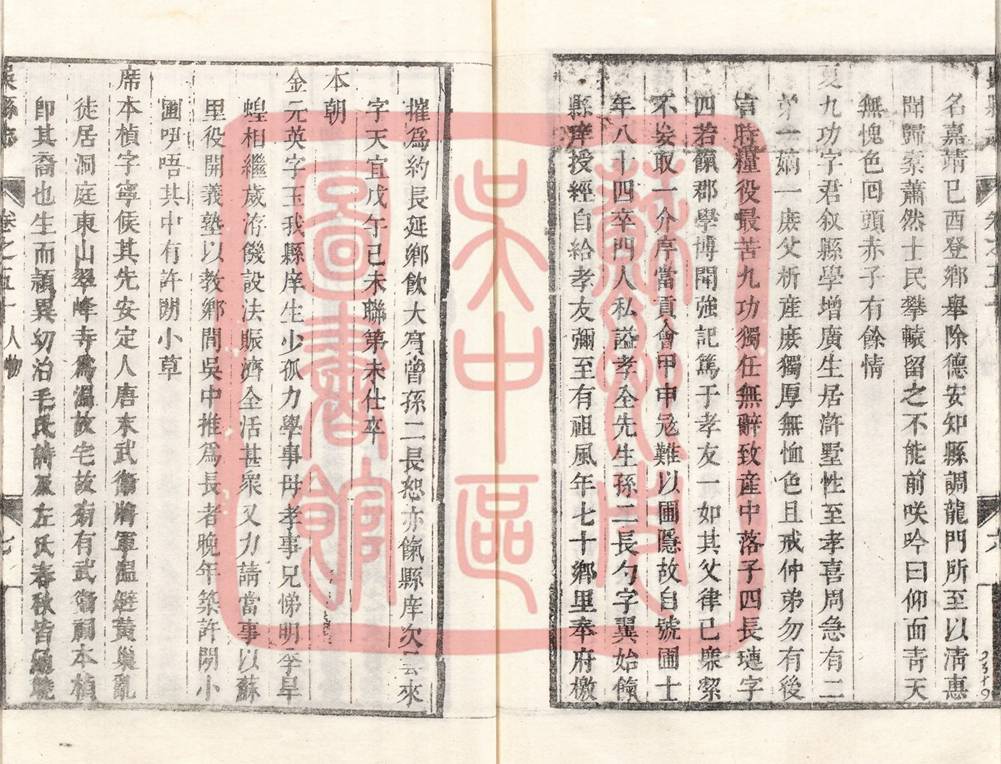 名嘉靖己酉登鄉舉除德安知縣調龍門所至以清惠
聞歸槖蕭然士民攀轅留之不能前咲吟曰仰面青天
無愧色回頭赤子有餘情
夏九功字君叙縣學增廣生居滸墅性至孝喜周急有二
弟一嫡一庶父析産庶獨厚無恤色且戒仲弟勿有後
言時糧役最苦九功獨任無辭致産中落子四長璉字
四若餼郡學博聞強記篤于孝友一如其父律已衆潔
不妄取一介序當貢會甲申冦難以圃隱故自號圃士
年八十四卒門人私謚孝全先生孫二長勻字翼始餼
縣庠授經自給孝友彌至有祖風年七十鄉里奉府檄
摧爲約長延鄉飲大賓曾孫二長恕亦餼縣庠次雲來
字天宜戊午己未聯第未仕卒
本朝
金元英字玉我縣庠生少孤力學事母孝事兄悌明季旱
蝗相繼歲洊饑設法賑濟全活甚衆又力請當事以蘇
里役開義塾以教鄉閭吳中推爲長者晚年築許閒小
圃吚唔其中有許閒小草
席本楨字寧侯其先安定人唐末武衛將軍溫避黃巢亂
徙居洞庭東山翠峰寺爲溫故宅故有武衛祠本楨
卽其裔也生而頴異幼治毛氏詩及左氏春秋皆
吳縣志
卷之五十
人物
七
蘇州市
吳中區
圖書館